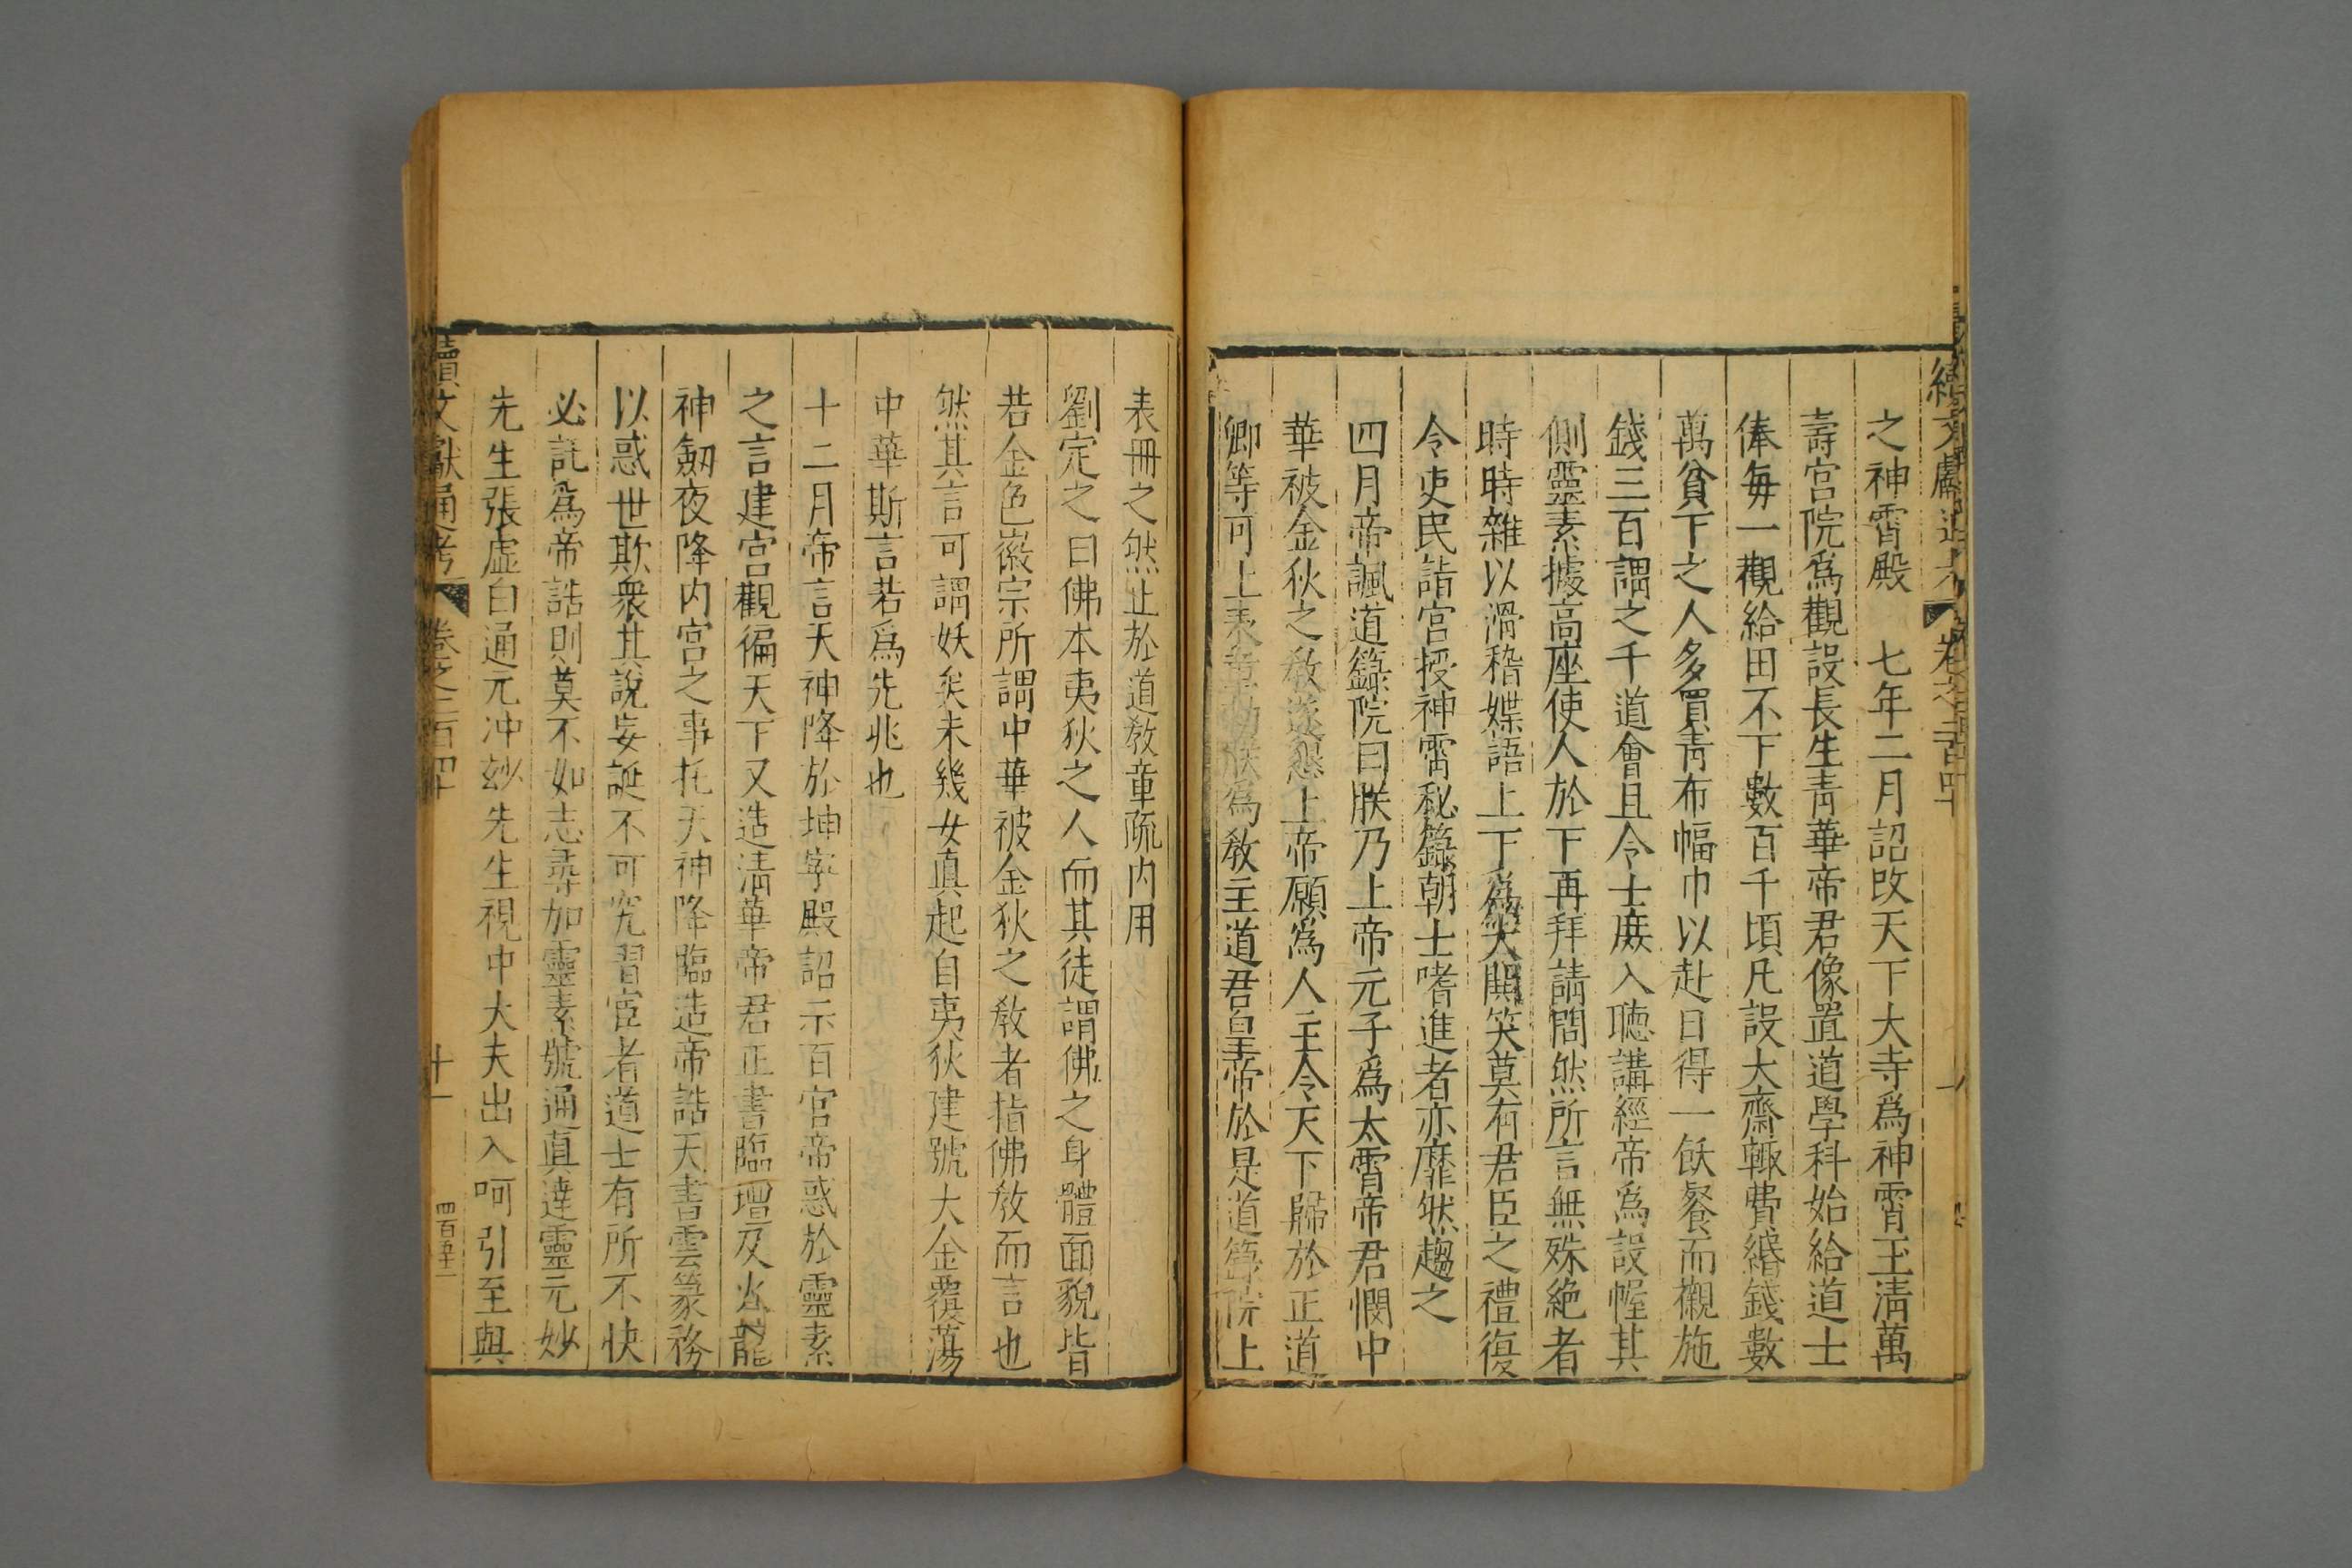 續文獻通考 卷之二百四十
之神霄殿 七年二月詔改天下大寺爲神霄玉清萬
壽宮院爲觀設長生青華帝君像置道學科始給道士
俸每一觀給田不下數百千頃凡設大齋輒費緡錢數
萬貧下之人多買青布幅巾以赴日得一飫餐而襯施
錢三百謂之千道會且令士庶入聽講經帝爲設幄其
側靈素據高座使人於下再拜請問然所言無殊絶者
時時雜以滑稽媟語上下爲大鬨笑莫有君臣之禮復
令吏民詣宮授神霄秘籙朝士嗜進者亦靡然趨之
四月帝諷道籙院曰朕乃上帝元子爲太霄帝君憫中
華被金狄之教遂懇上帝願爲人主令天下歸於正道
卿等可上表章勑朕爲教主道君皇帝於是道籙院上
表冊之然止於道教章疏内用
劉定之曰佛本夷狄之人而其徒謂佛之身體面貌皆
若金色徽宗所謂中華被金狄之教者指佛教而言也
然其言可謂妖矣未幾女真起自夷狄建號大金覆蕩
中華斯言若爲先兆也
十二月帝言天神降於坤寧殿詔示百官帝惑於靈素
之言建宮觀徧天下又造清華帝君正晝臨壇及火龍
神劒夜降内宮之事托天神降臨造帝誥天書雲篆務
以惑世欺衆其說妄誕不可究習宦者道士有所不快
必託爲帝誥則莫不如志尋加靈素號通真達靈元妙
先生張虛白通元冲妙先生視中大夫出入呵引至與
續文獻通考 卷之二百四十 十一 四百五十二